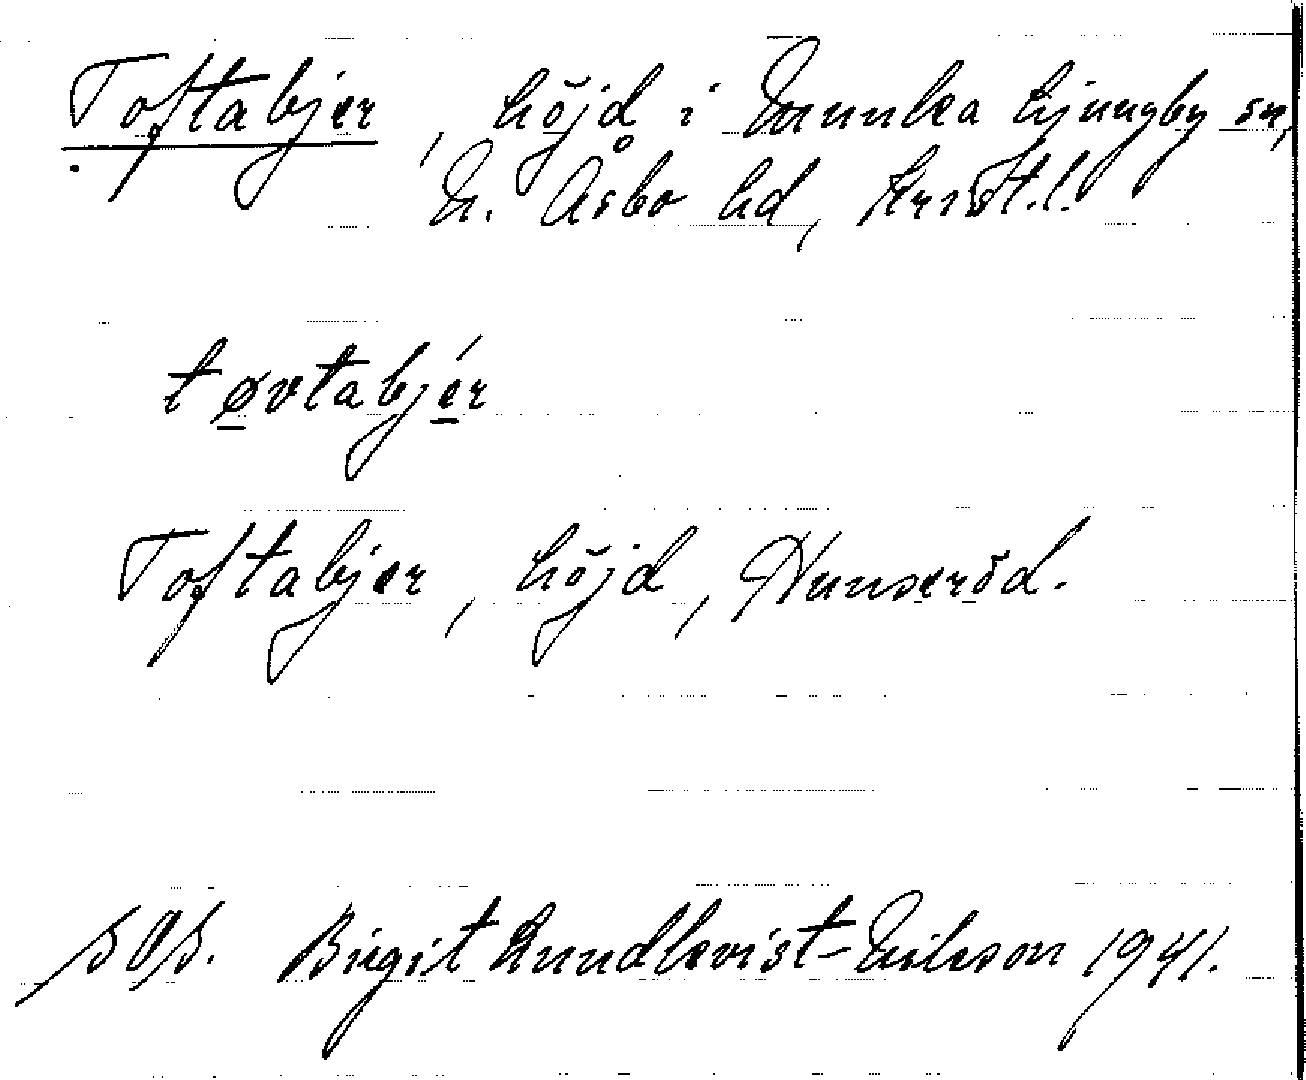 Toftabjer, höjd i Munka Ljungby sn,
N. Åsbo hd, Krist.l.
tøvtabjér
Toftabjer, höjd, Hunseröd.
Birgit Lundkvist-Nilsson 1941.